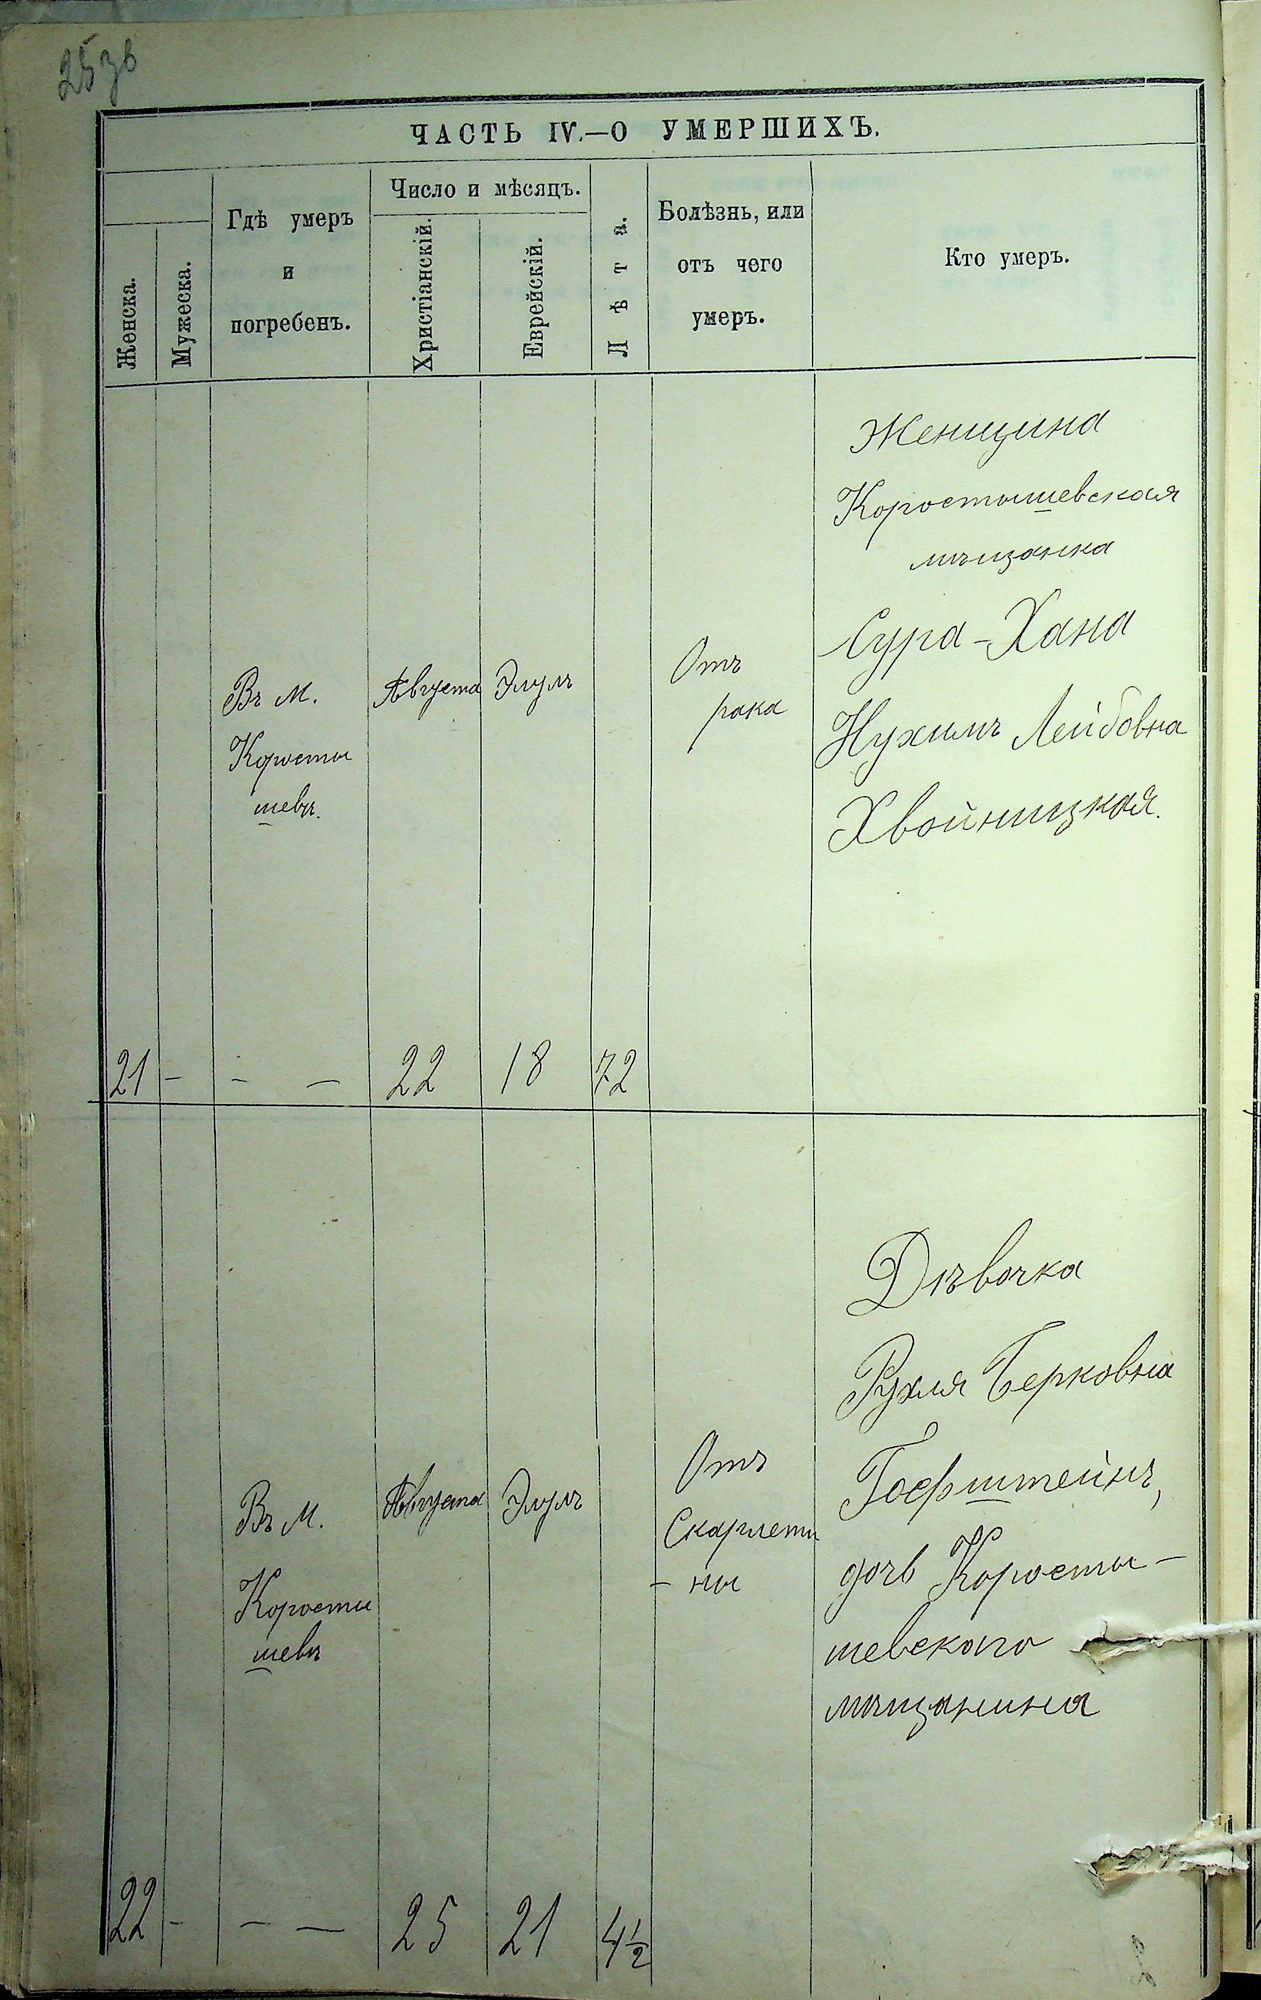 253в
ЧАСТЬ IV.—О УМЕРШИХЪ.
Женска.
Мужеска.
Гдѣ умеръ
и
погребенъ.
Число и мѣсяцъ.
Христіанскій.
Еврейскій.
Лѣта.
Болѣзнь, или
отъ чего
умеръ.
Кто умеръ.
Женщина
Коростышевская
мѣщанка
Сура-Хана
Нухимъ Лейбовна
Хвойницкая.
Отъ
рака
Въ м.
Коросты
шевѣ.
Августа
Элулъ
21 - - - 22 18 72
Дѣвочка
Рухля Берковна
Гофштейнъ,
дочь Коросты-
шевскаго
мѣщанина
Отъ
Скарлати
- ны
Въ м.
Коросты
шевѣ
Августа
Элулъ
22 - - - 25 21 4½